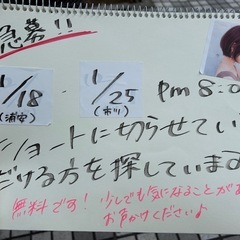 急募!!
1/18 11/25 pm 8:0
(浦安) (市川)
ショートに切らせてい
だける方を探しています
無料です! 少しでも気になることがあ
お声かけください♪